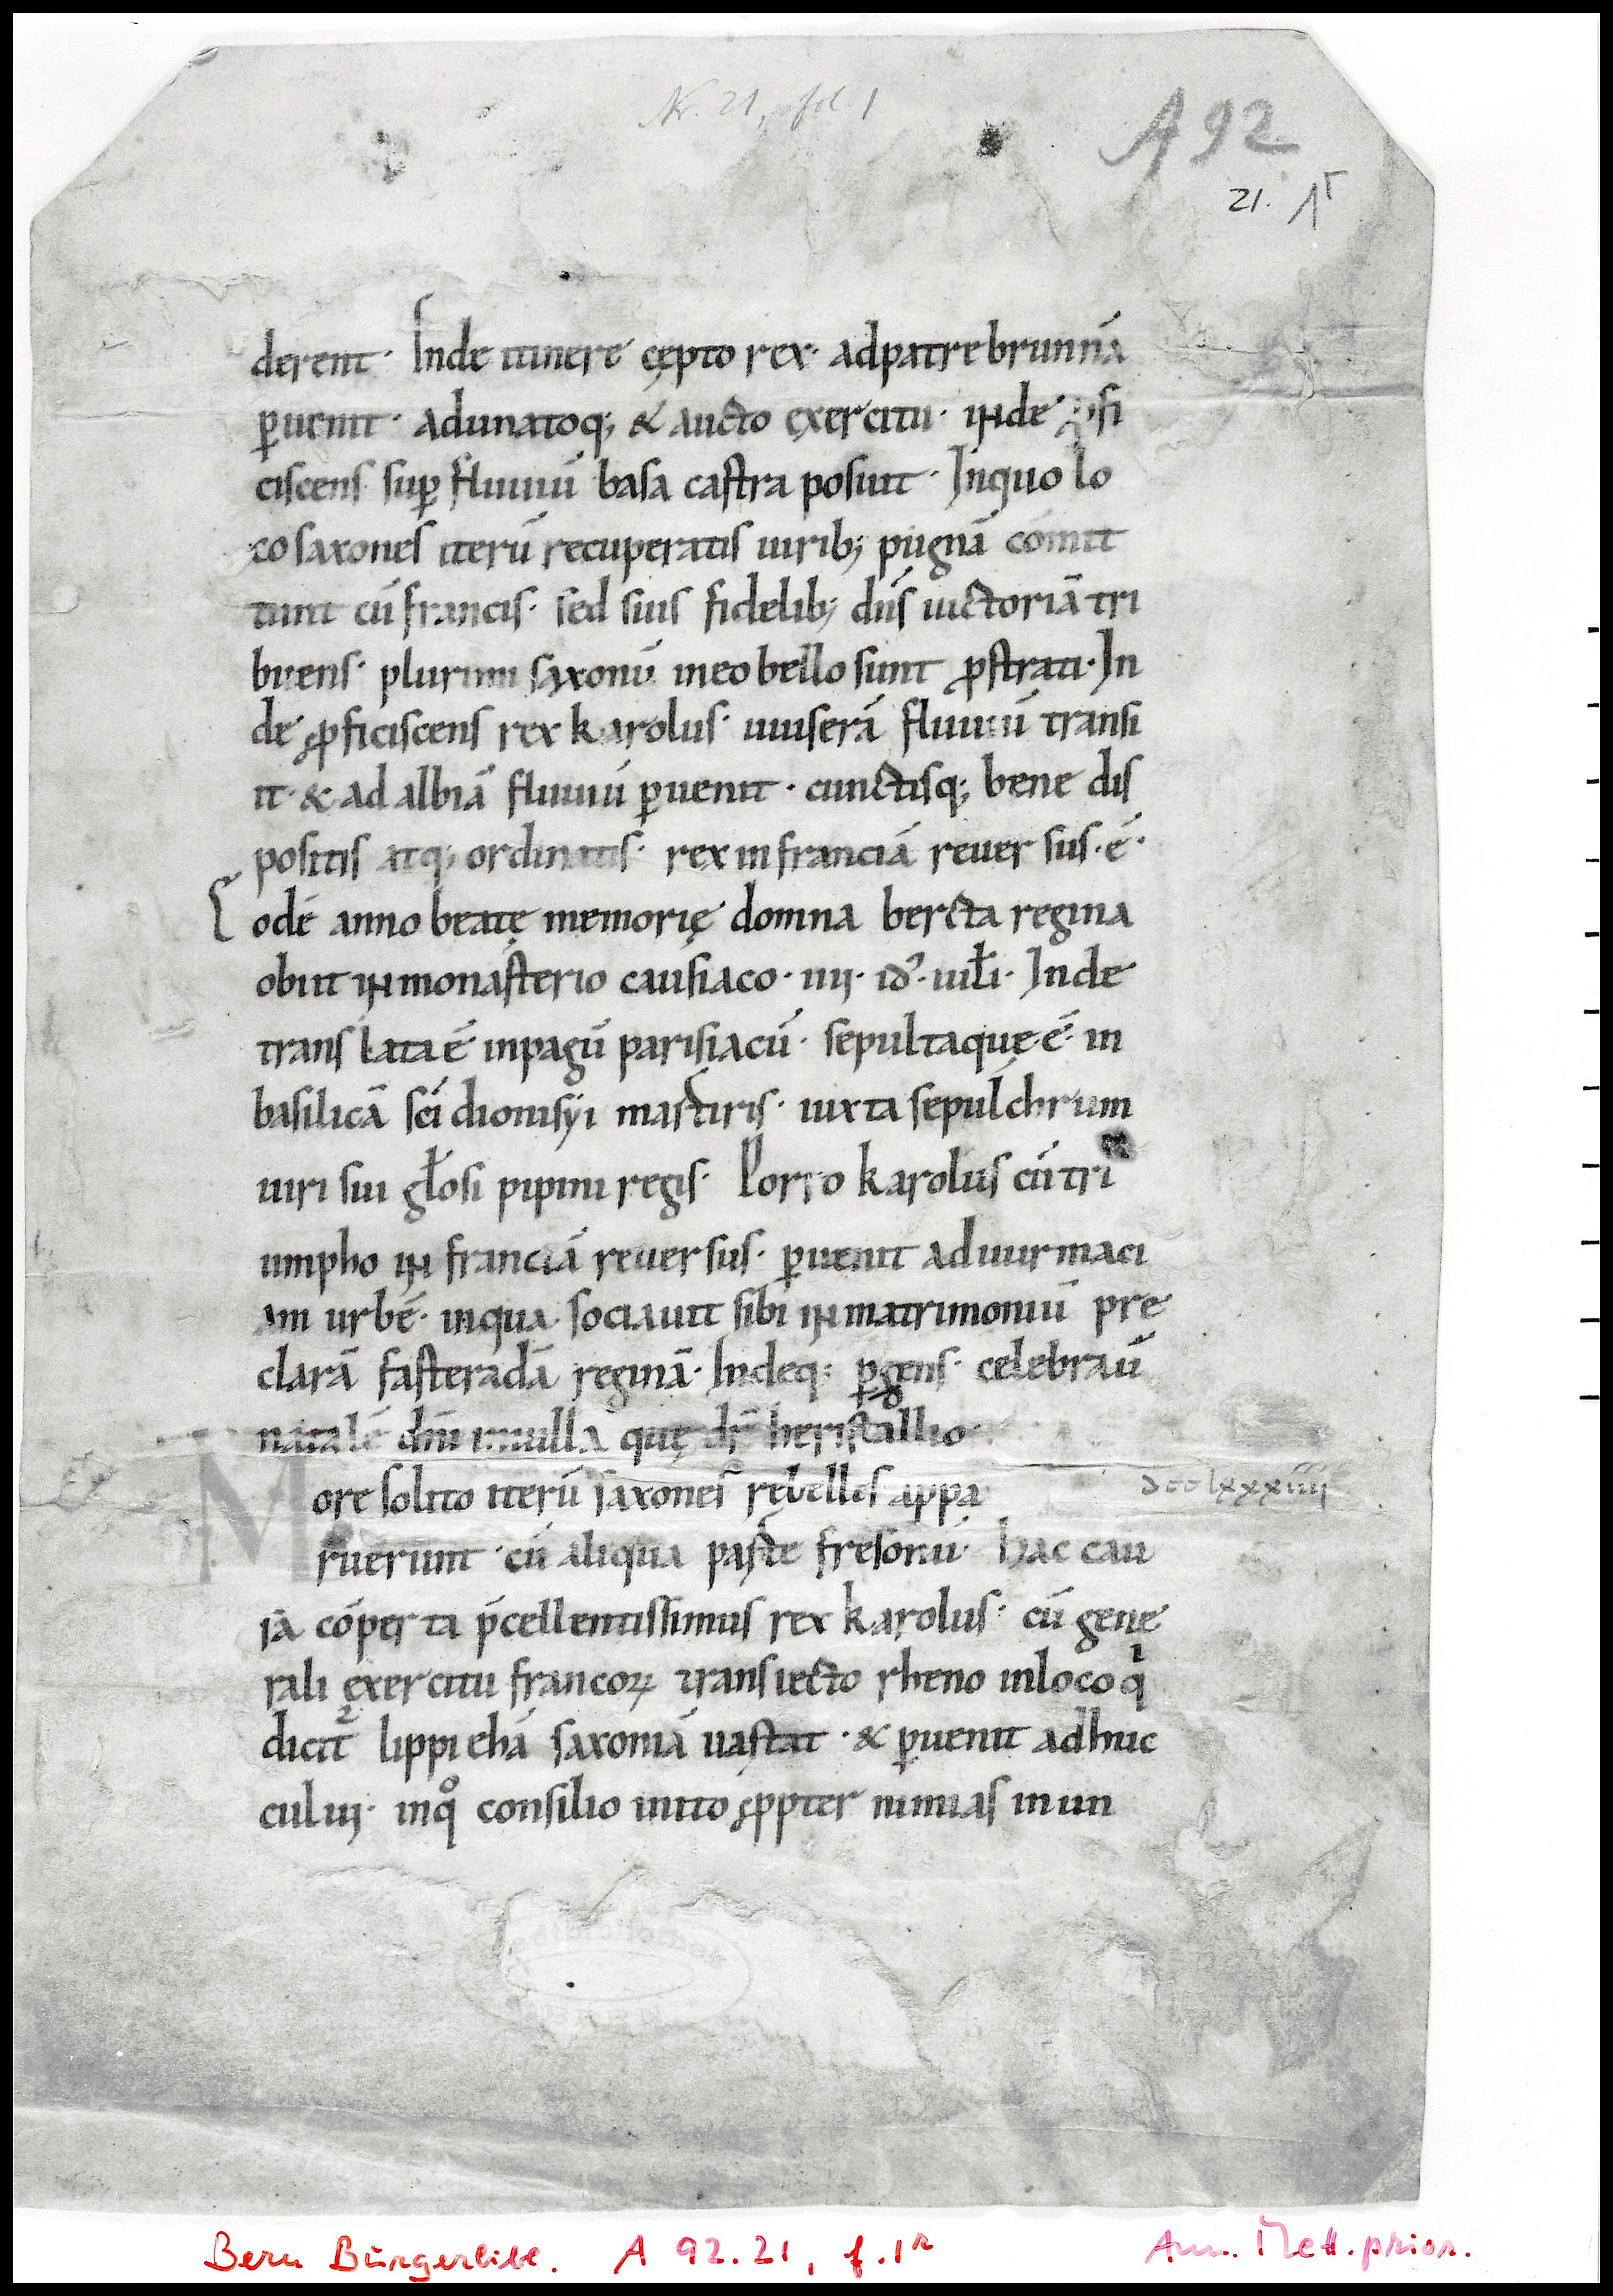 Nr. 21, fol. 1
A 92
21. 1r
derent· Inde itinere cępto rex· adpatrebrunnā
ꝑuenit· adunatoq; & aucto exercitu· inde ꝓfi
ciscens suꝑ fluuiū basa castra posuit· Inquo lo
co saxones iterū recuperatis uirib; pugnā cōmit
tunt cū francis· sed suis fidelib; dn̄s uictoriā tri
buens· plurimi saxonū ineo bello sunt ꝓstrati· In
de ꝓficiscens rex karolus· uuiserā fluuiū transi
it· & ad albiā fluuiū ꝑuenit· cunctisq; bene dis
positis atq; ordinatis· rex in franciā reuersus·ē·
Eodē anno beatę memorię domna bercta regina
obiit in monasterio causiaco· iiij· id᾽· iuƚi· Inde
translata ē inpagū parisiacū· sepultaquę·ē· in
basilicā sc̄i dionisẏi martiris· iuxta sepulchrum
uiri sui gƚosi pipini regis· Porro karolus cū tri
umpho in franciā reuersus· ꝑuenit ad uurmaci
am urbē· inqua sociauit sibi in matrimoniū pre
clarā fasteradā reginā· Indeq; ꝑgens· celebrauī
natalē dn̄i inuilla quę dr̄ heristallio·
More solito iterū saxones rebelles appa
dcclxxxiiii
ruerunt· cū aliqua parte fresonū· hac cau
sā cōperta p̄cellentissimus rex karolus· cū gene
rali exercitu francoꝝ transiecto rheno inloco q̇
dicit᷑ lippiehā saxoniā uastat· & ꝑuenit adhuc
culuij· inqͦ consilio inito ꝓpter nimias inun
Bern Bürgerbibl. A 92.21, f.1r
Ann. Mett. prior.